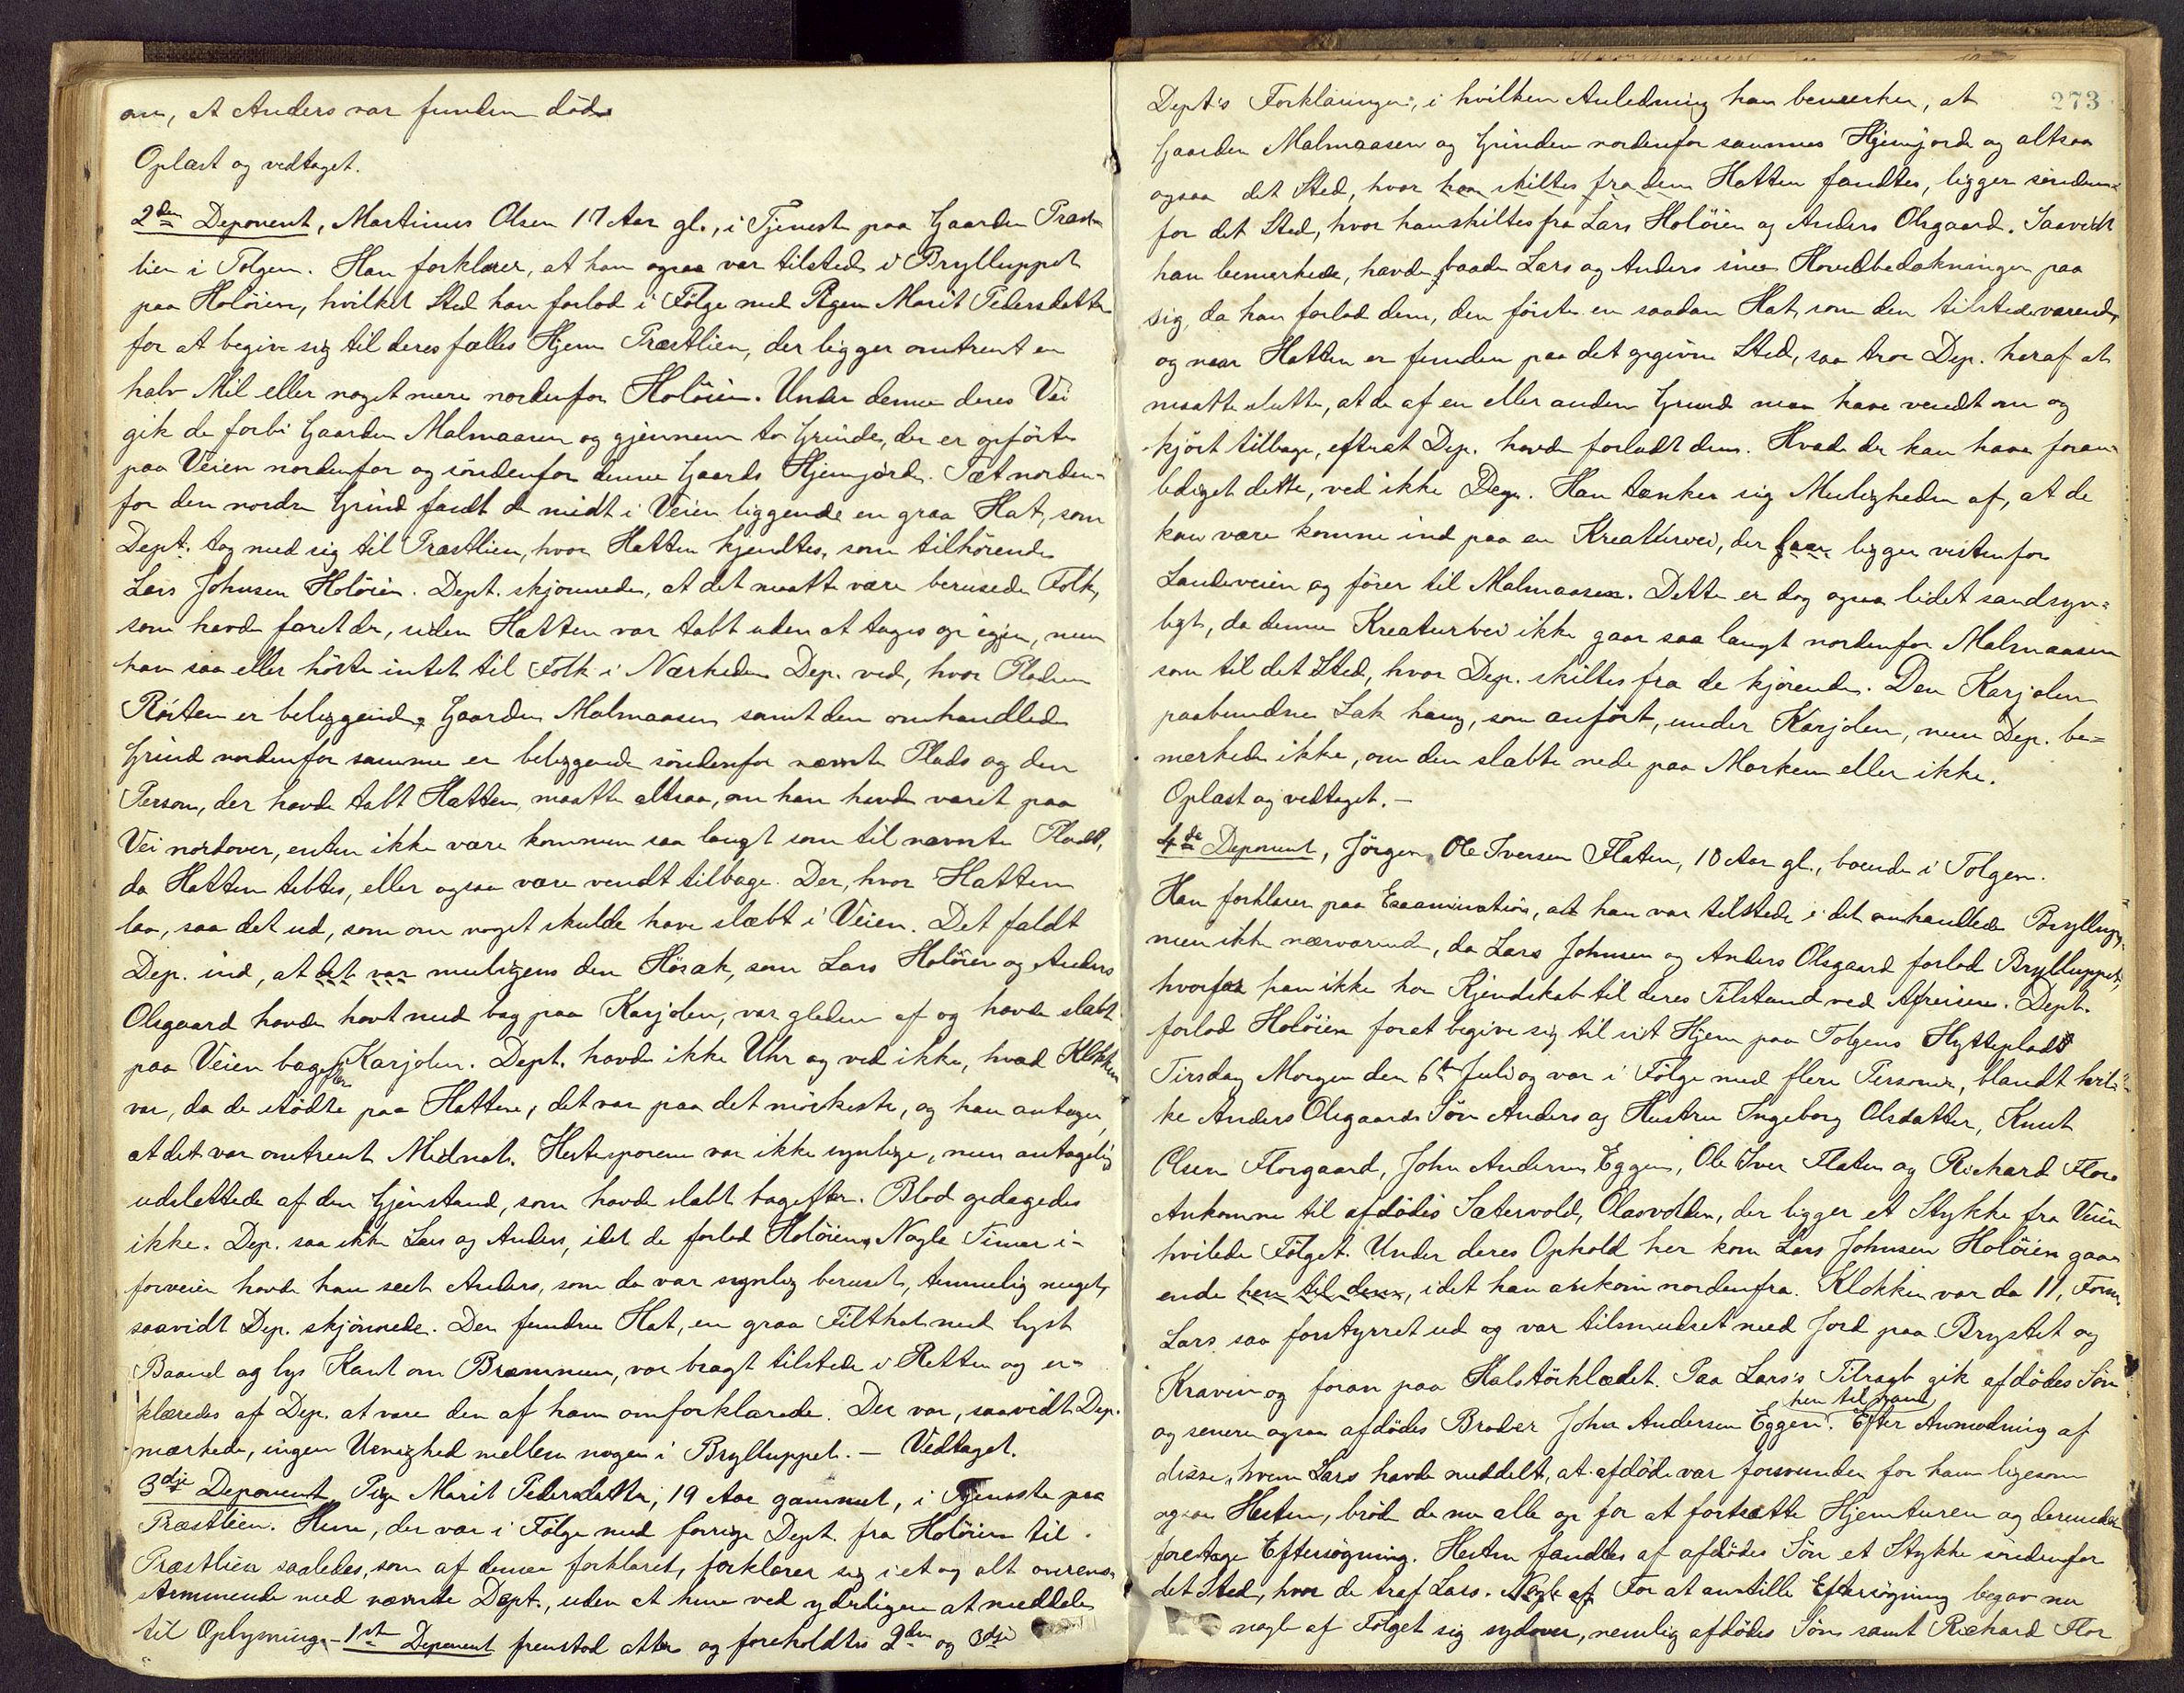 om, at Anders var funden död.
Oplæst og vedtaget.
2den Deponent, Martinus Olsen 17 Aar gl., i Tjeneste paa Gaarden Præst-
lien i Tolgen. Han forklarer, at han ogsaa var tilstede i Brylluppet
paa Holöien, hvilket Sted han forlod i Fölge med Pigen Marit Pedersdatter
for at begive sig til deres fælles Hjem Præstlien, der ligger omtrent en
halv Mil eller noget mere nordenfor Holöien. Under denne deres Vei
gik de forbi Gaarden Malmaasen og gjennem to Grinde, der er opförte
paa Veien nordenfor og söndenfor denne Gaards Hjemjorde. Tæt norden-
for den nordre Grind fandt de midt i Veien liggende en graa Hat, som
Dept. tog med sig til Præstlien, hvor Hatten kjendtes, som tilhörende
Lars Johnsen Holöien. Dept. skjönnede, at det maatte være berusede Folk,
som havde faret der, siden Hatten var tabt uden at tages op igjen, men
han saa eller hörte intet til Folk i Nærheden. Dep. ved, hvor Pladsen
Rösten er beliggende. Gaarden Malmaasen samt den omhandlede
Grind nordenfor samme er beliggende söndenfor nævnte Plads og den
Person, der havde tabt Hatten, maatte altsaa, om han havde været paa
Vei nordover, enten ikke være kommen saa langt som til nævnte Plads,
da Hatten tabtes, eller ogsaa være vendt tilbage. Der, hvor Hatten
laa, saa det ud, som om noget skulde have slæbt i Veien. Det faldt
Dep. ind, at det var muligens den Hösæk, som Lars Holöien og Anders
Olsgaard havde havt med bag paa Karjolen, var gleden af og havde slæbt
paa Veien bagefter Karjolen. Dept. havde ikke Uhr og ved ikke, hvad Klokken
var, da de stödte paa Hatten, det var paa det mörkeste, og han antager,
at det var omtrent Midnat. Hestesporene var ikke synlige, men antagelig
udslettede af den Gjenstand, som havde slæbt bagefter. Blod opdagedes
ikke. Dep. saa ikke Lars og Anders, idet de forlod Holöien. Nogle Timer i
forveien havde han seet Anders, som da var synlig beruset, temmelig meget,
saavidt Dep. skjönnede. Den fundne Hat, en graa Filthat med lyst
Baand og lys Kant om Bræmmen, var bragt tilstede i Retten og er-
klæredes af Dep. at være den af ham omforklarede. Der var, saavidt Dep.
mærkede, ingen Uenighed mellem nogen i Brylluppet. — Vedtaget.
3dje Deponent, Pige Marit Pedersdatter, 19 Aar gammel, i Tjeneste paa
Præstlien. Hun, der var i Fölge med forrige Dept. fra Holöien til
Præstlien saaledes, som af denne forklaret, forklarer sig i et og alt overens-
stemmende med nævnte Dept., uden at hun ved yderligere at meddele
til Oplysning. — 1ste Deponent fremstod atter og foreholdtes 2den og 3dje
273
Dept's Forklaringer, i hvilken Anledning han bemærker, at
Gaarden Malmaasen og Grinden nordenfor sammes Hjemjorde og altsaa
ogsaa det Sted, hvor han skiltes fra dem Hatten fandtes, ligger sönden-
for det Sted, hvor han skiltes fra Lars Holöien og Anders Olsgaard. Saavidt
han bemærkede, havde baade Lars og Anders sine Hovedbedækninger paa
sig, da han forlod dem, den förste en saadan Hat, som den tilstedeværende,
og naar Hatten er funden paa det opgivne Sted, saa tror Dep. heraf at
maatte slutte, at de af en eller anden Grund maa have vendt om og
kjört tilbage, efterat Dep. havde forladt dem. Hvad der kan have foran-
lediget dette, ved ikke Dep. Han tænker sig Muligheden af, at de
kan være komne ind paa en Kreaturvei, der ligger vestenfor
Landeveien og förer til Malmaasen. Dette er dog ogsaa lidet sandsyn-
ligt, da denne Kreaturvei ikke gaar saa langt nordenfor Malmaasen
som til det Sted, hvor Dep. skiltes fra de kjörende. Den Karjolen
paabundne Sæk hang, som anfört, under Karjolen, men Dep. be-
mærkede ikke, om den slæbte nede paa Marken eller ikke.
Oplæst og vedtaget. —
4de Deponent, Jörgen Ole Iversen Flaten, 18 Aar gl., boende i Tolgen.
Han forklarer paa Examination, at han var tilstede i det omhandlede Bryllup,
men ikke nærværende, da Lars Johnsen og Anders Olsgaard forlod Brylluppet,
hvorfor han ikke har Kjendskab til deres Tilstand ved Afreisen. Dept.
forlod Holöien for at begive sig til sit Hjem paa Tolgens Hytteplads
Tirsdag Morgen den 6te Juli og var i Fölge med flere Personer, blandt hvil-
ke Anders Olsgaards Sön Anders og Hustru Ingeborg Olsdatter, Knut
Olsen Florgaard, John Andersen Eggen, Ole Iver Flaten og Richard Flor.
Ankomne til afdödes Sætervold, Olasvolden, der ligger et Stykke fra Veien
hvilede Fölget. Under deres Ophold her kom Lars Johnsen Holöien gaa-
ende hen til dem, idet han ankom nordenfra. Klokken var da 11, Form.
Lars saa forstyrret ud og var tilsmudset med Jord paa Brystet og
Kraven og foran paa Halstörklædet. Paa Lars's Tilraab gik afdödes Sön
og senere ogsaa afdödes Broder John Andersen Eggen hen til ham. Efter Anmodning af
disse, hvem Lars havde meddelt, at afdöde var forsvunden for ham ligesom
ogsaa Hesten, bröd de nu alle op for at fortsætte Hjemturen og derunder
foretage Eftersögning. Hesten fandtes af afdödes Sön et Stykke söndenfor
det Sted, hvor de traf Lars. Nogle af For at anstille Eftersögning begav nu
nogle af Fölget sig sydover, nemlig afdödes Sön samt Richard Flor